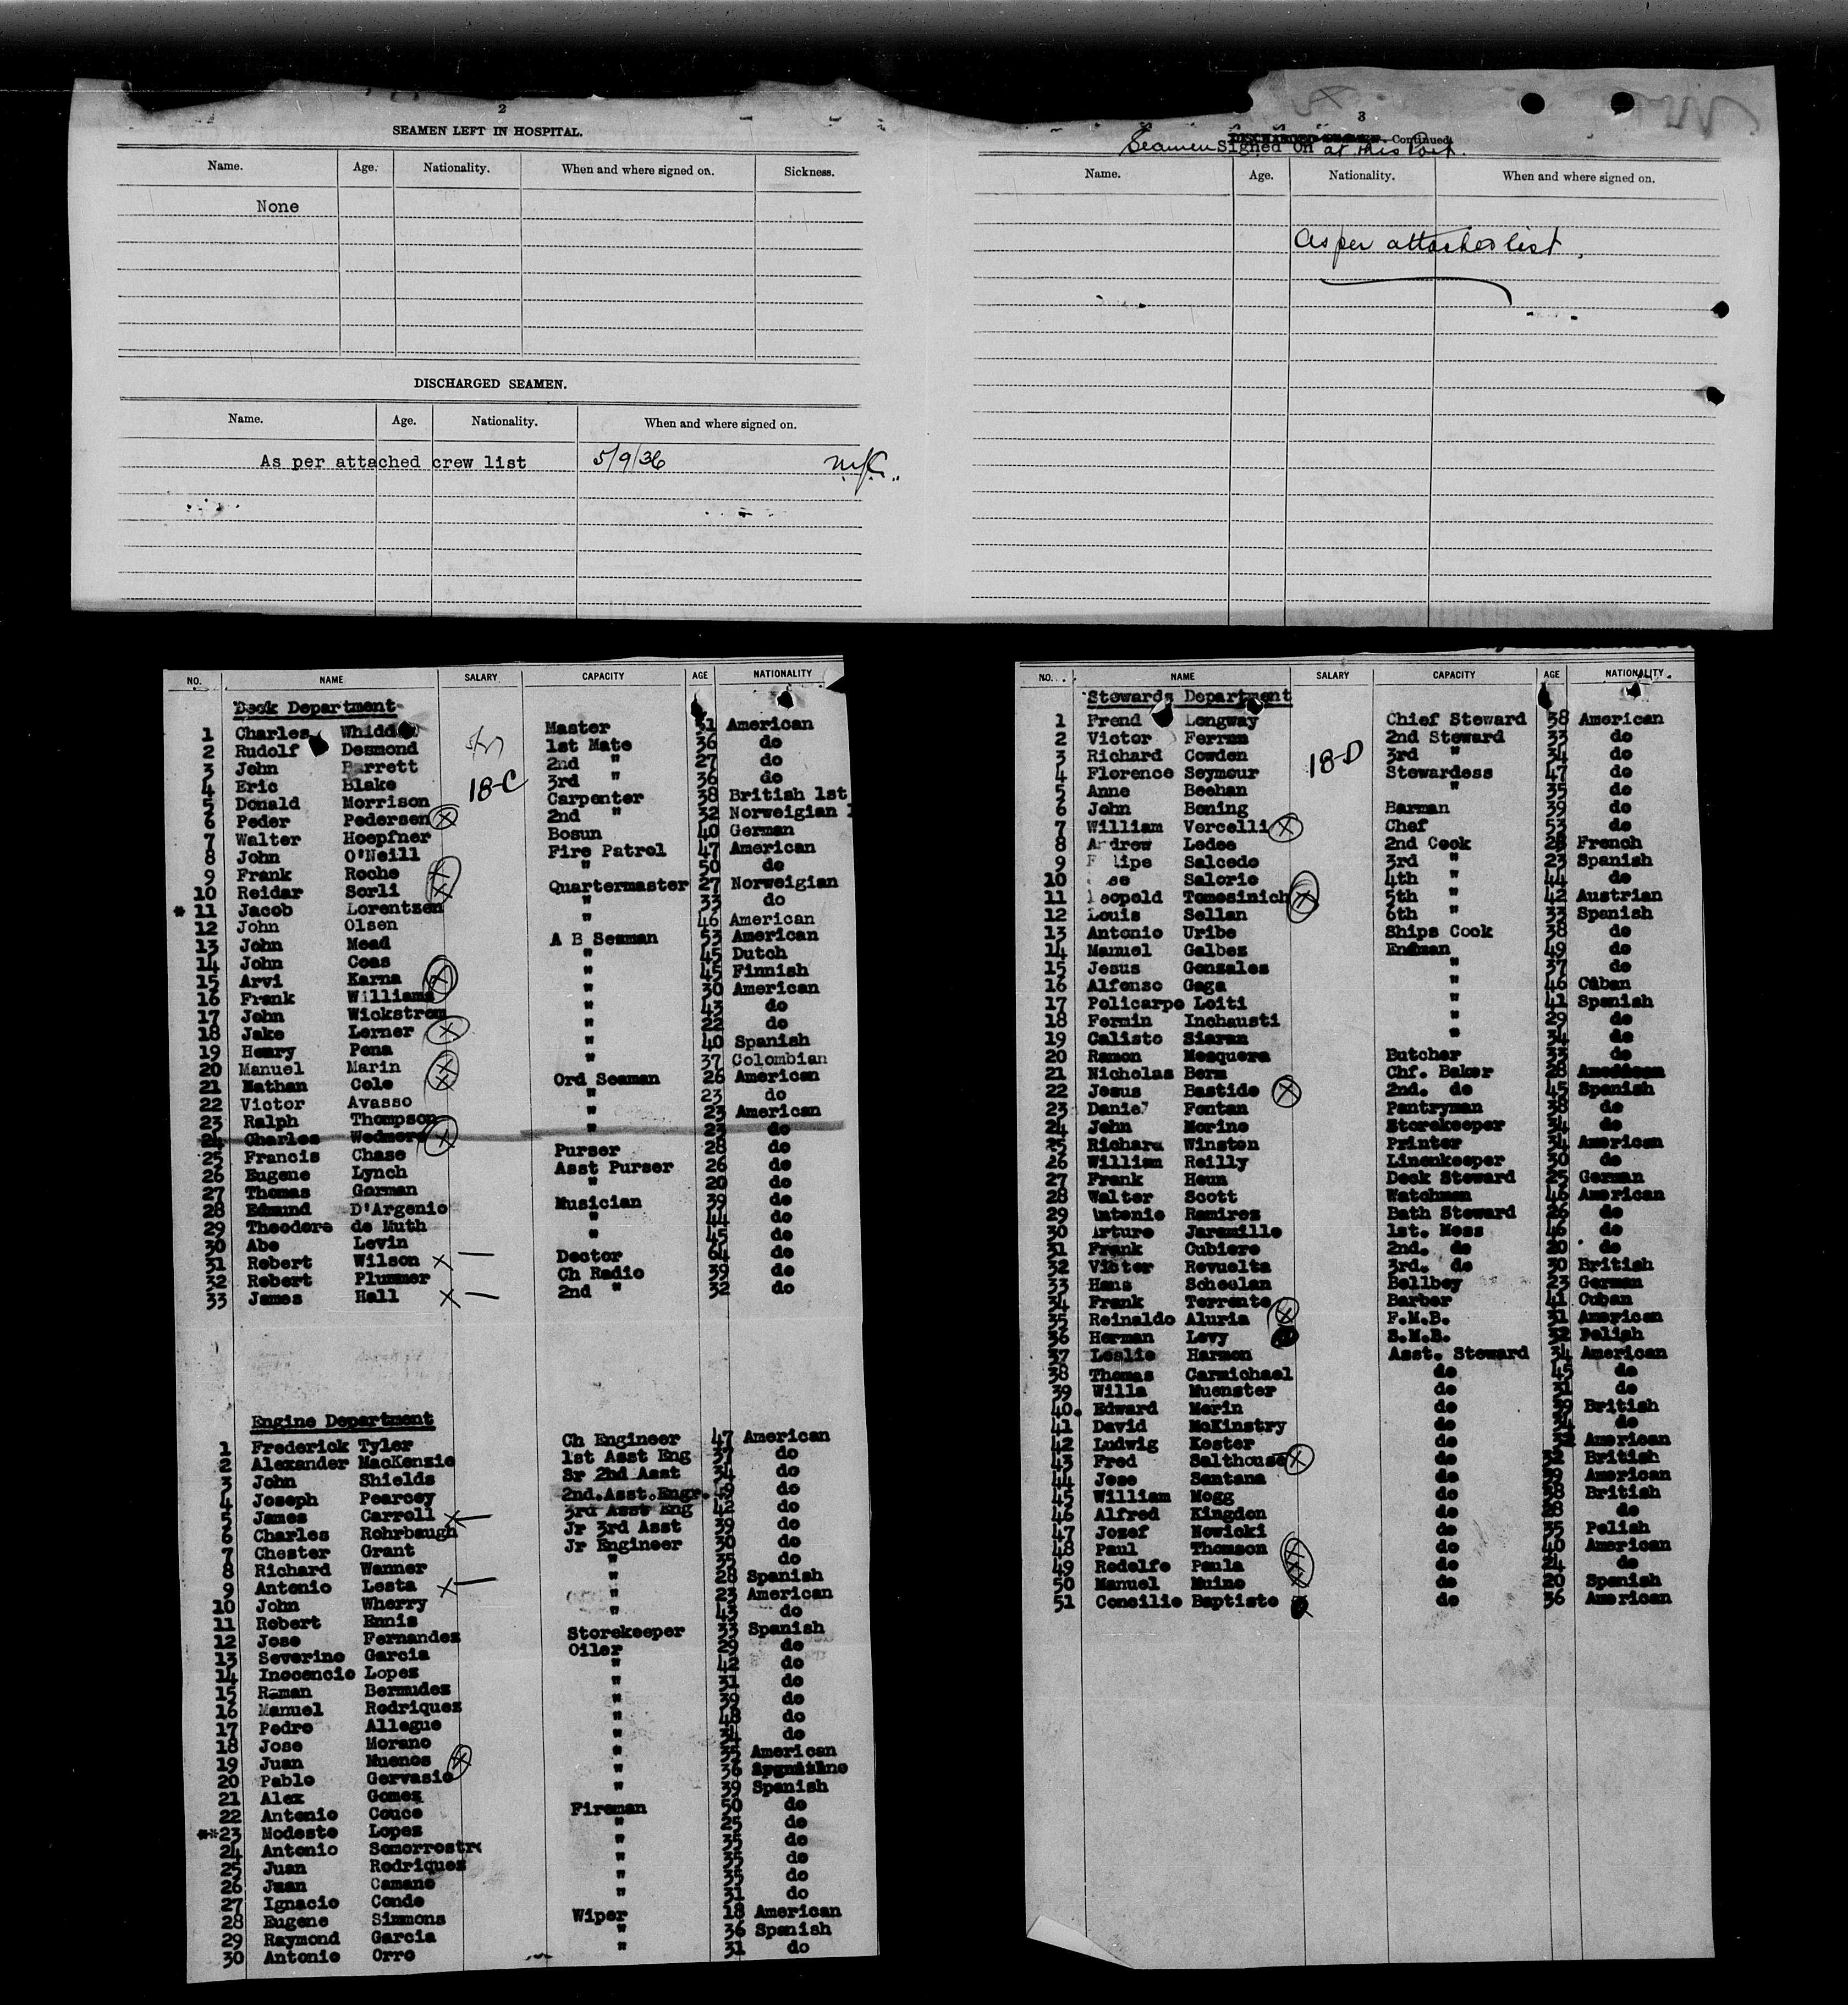 2
SEAMEN LEFT IN HOSPITAL.
Name. Age. Nationality. When and where signed on. Sickness.
None
DISCHARGED SEAMEN.
Name. Age. Nationality. When and where signed on.
As per attached crew list 5/9/36
3
DISCHARGED SEAMEN. Continued
Seamen Signed on at this Port.
Name. Age. Nationality. When and where signed on.
As per attached list.
NO. NAME SALARY CAPACITY AGE NATIONALITY
Deck Department
1 Charles Master American
2 Rudolf Desmond 1st Mate 36 do
3 John Barrett 2nd " 27 do
4 Eric Blake 3rd " 36 do
18-C
5 Donald Morrison Carpenter 38 British 1st
6 Peder Pedersen 2nd " 32 Norweigian
7 Walter Hoepfner Bosun 40 German
8 John O'Neill Fire Patrol 47 American
9 Frank Roche " 50 do
10 Reidar Sorli Quartermaster 27 Norweigian
* 11 Jacob Lorentzen " 33 do
12 John Olsen " 46 American
13 John Mead A B Seaman 53 American
14 John Coas " 45 Dutch
15 Arvi Karna " 45 Finnish
16 Frank Williams " 30 American
17 John Wickstrom " 43 do
18 Jake Lerner " 22 do
19 Henry Pena " 40 Spanish
20 Manuel Marin " 37 Colombian
21 Nathan Cole Ord Seaman 26 American
22 Victor Avasso " 23 do
23 Ralph Thompson " 23 American
24 Charles Wedmore " 23 do
25 Francis Chase Purser 28 do
26 Eugene Lynch Asst Purser 26 do
27 Thomas Gorman " 20 do
28 Edmund D'Argenio Musician 39 do
29 Theodore de Muth " 44 do
30 Abe Levin " 45 do
31 Robert Wilson x Doctor 64 do
32 Robert Plummer Ch Radio 39 do
33 James Hall x 2nd " 32 do
Engine Department
1 Frederick Tyler Ch Engineer 47 American
2 Alexander MacKenzie 1st Asst Eng 37 do
3 John Shields Sr 2nd Asst 34 do
4 Joseph Pearcey 2nd.Asst.Engr. do
5 James Carroll x 3rd Asst Eng 42 do
6 Charles Rohrbaugh Jr 3rd Asst 39 do
7 Chester Grant Jr Engineer 30 do
8 Richard Wanner " 35 do
9 Antonio Lesta x " 28 Spanish
10 John Wherry " 23 American
11 Robert Ennis " 43 do
12 Jose Fernandez Storekeeper 33 Spanish
13 Severino Garcia Oiler 29 do
14 Inocencio Lopez " 42 do
15 Raman Bermudez " 31 do
16 Manuel Rodriquez " 39 do
17 Pedro Allegue " 48 do
18 Jose Morano " 34 do
19 Juan Muenos " 35 American
20 Pablo Gervasio " 36
21 Alex Gomez " 39 Spanish
22 Antonio Couce Fireman 50 do
**23 Modesto Lopez " 25 do
24 Antonio Somorrostro " 35 do
25 Juan Rodriquez " 35 do
26 Juan Camano " 35 do
27 Ignacio Conde " 31 do
28 Eugene Simmons Wiper 18 American
29 Raymond Garcia " 36 Spanish
30 Antonio Orro " 31 do
NO. NAME SALARY CAPACITY AGE NATIONALITY
Stewards Department
1 Frend Longway Chief Steward 38 American
2 Victor Ferran 2nd Steward 33 do
3 Richard Cowden 3rd " 34 do
18-D
4 Florence Seymour Stewardess 47 do
5 Anne Beehan " 35 do
6 John Boning Barman 39 do
7 William Vercelli Chef 53 do
8 Andrew Ledee 2nd Cook French
9 Salcedo 3rd " 23 Spanish
10 Salorio 4th " 44 do
11 Leopold Tomesinich 5th " 42 Austrian
12 Louis Sellan 6th " 33 Spanish
13 Antonio Uribe Ships Cook 38 do
14 Manuel Galbez Endman 49 do
15 Jesus Gonzales " 37 do
16 Alfonso Gaga " 46 Cuban
17 Policarpo Loiti " 41 Spanish
18 Fermin Inchausti " 29 do
19 Calisto Siaran " 34 do
20 Ramon Mosquera Butcher 33 do
21 Nicholas Berm Chf. Baker 28 American
22 Jesus Bastide 2nd. do 45 Spanish
23 Daniel Fontan Pantryman 38 do
24 John Morino Storekeeper 34 do
25 Richard Winston Printer 34 American
26 William Reilly Linenkeeper 30 do
27 Frank Heun Deck Steward 25 German
28 Walter Scott Watchman 46 American
29 Antonio Ramirez Bath Steward 26 do
30 Arturo Jaramillo 1st. Mess 46 do
31 Frank Cubiero 2nd. do 20 do
32 Victor Revuelta 3rd. do 30 British
33 Hans Scheelan Bellboy 23 German
34 Frank Torrente Barber 41 Cuban
35 Reinaldo Aluria F.M.B. 31 American
36 Herman Levy S.M.B. 32 Polish
37 Leslie Harmon Asst. Steward 34 American
38 Thomas Carmichael do 45 do
39 Willa Muenster do 31 do
40. Edward Merin do 39 British
41 David McKinstry do 34 do
42 Ludwig Koster do American
43 Fred Salthouse do 32 British
44 Jose Santana do 39 American
45 William Mogg do 38 British
46 Alfred Kingdon do 28 do
47 Jozef Nowicki do 35 Polish
48 Paul Thomson do 40 American
49 Rodolfo Paula do 24 do
50 Manuel Muino do 20 Spanish
51 Concilio Baptiste do 36 American